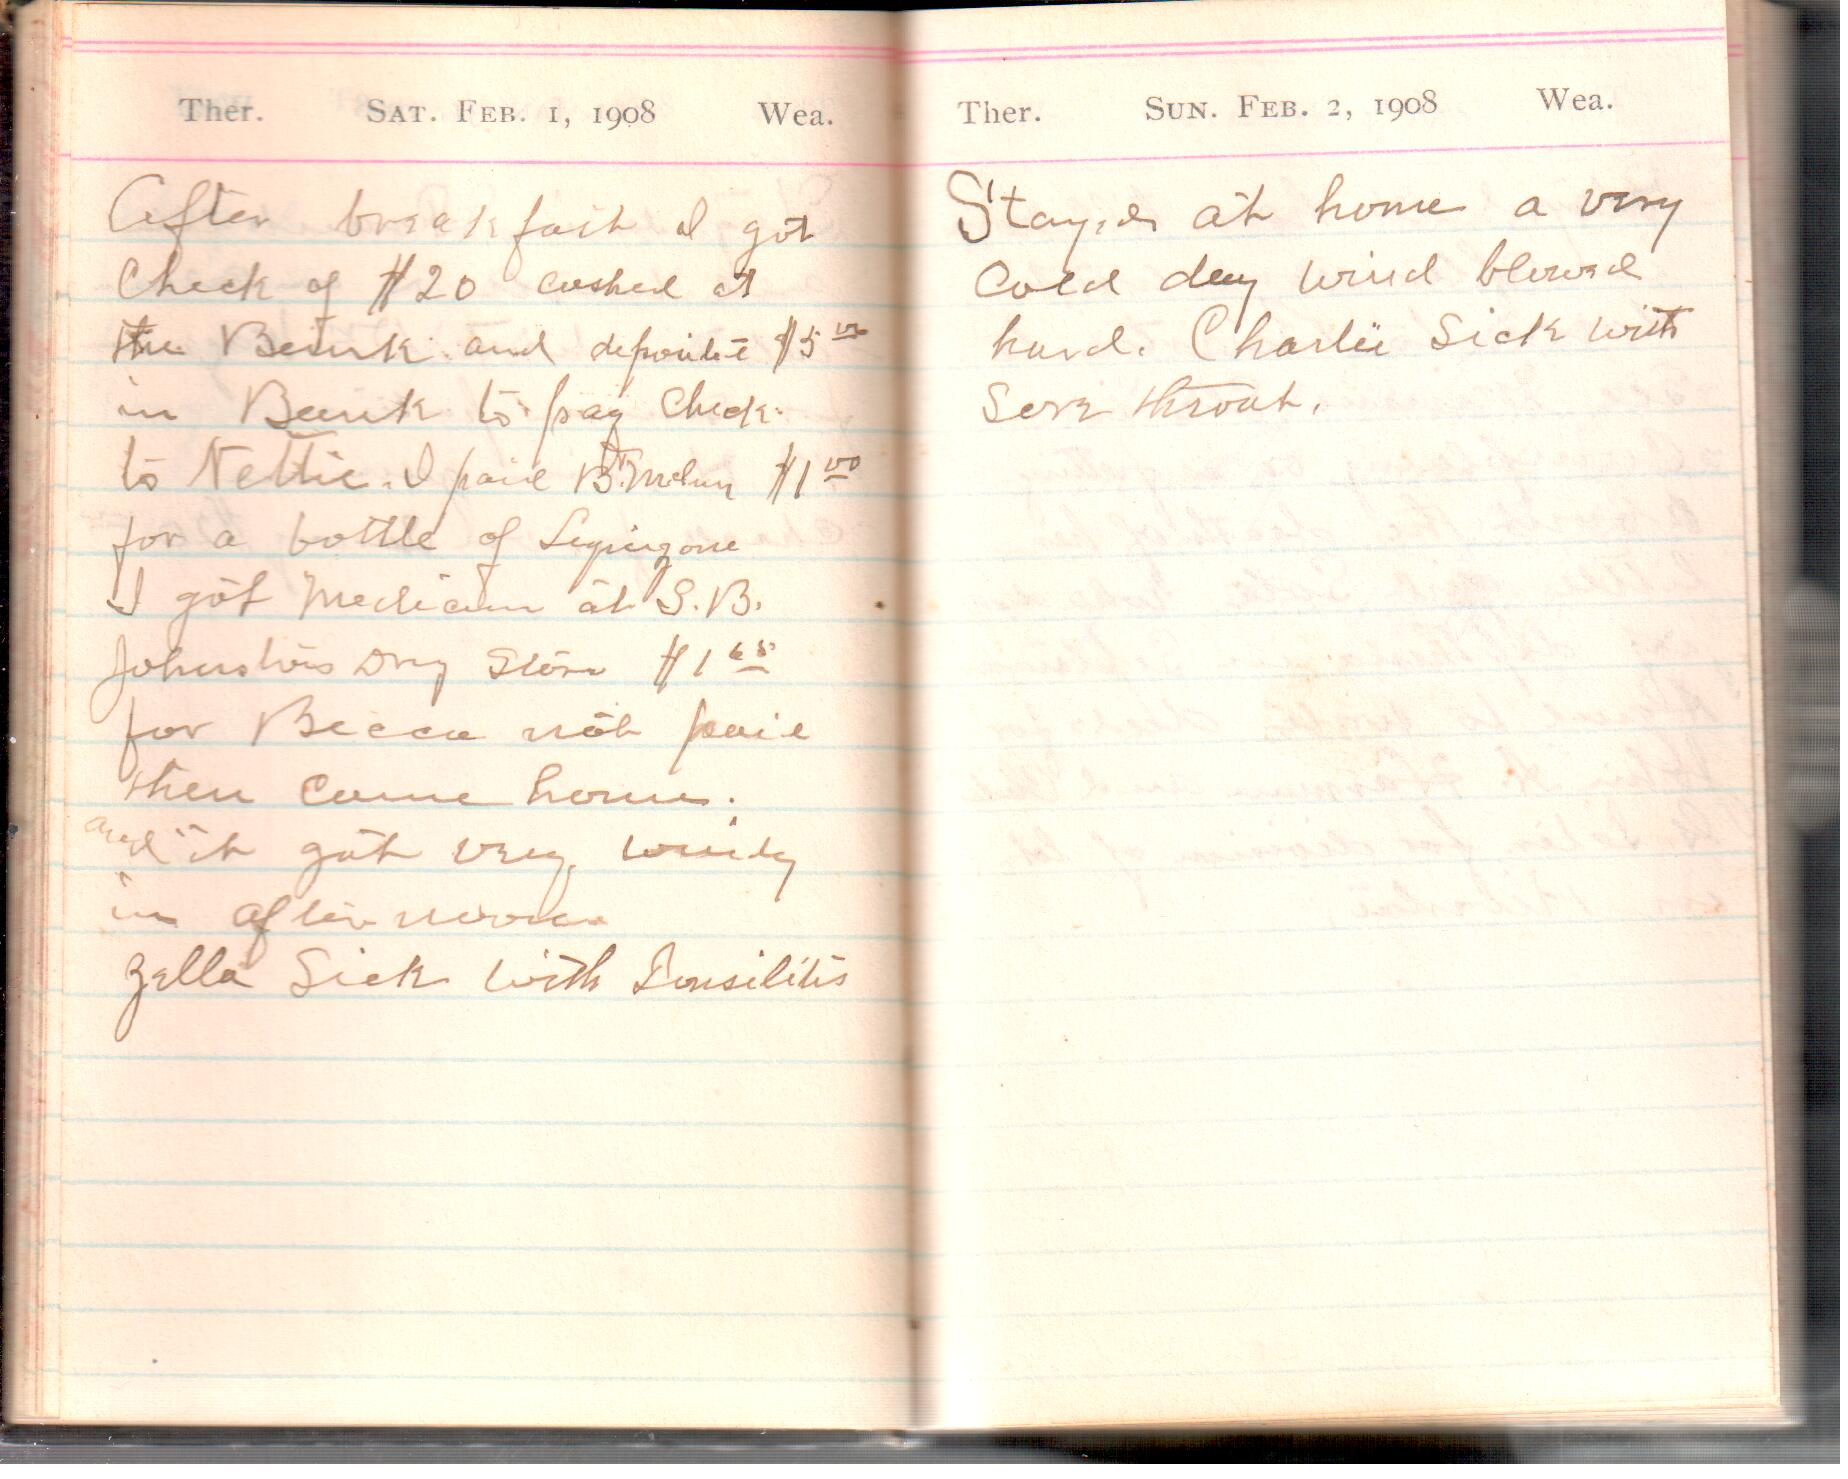 Ther. SAT. FEB. 1, 1908 Wea.
After breakfast I got
Check of $20 cashed at
the Bank and deposite $5 00
in Bank to pay Check
to Nettie. I paid $1 00
for a bottle of
I got Medicine at S. B.
Johnstons Drug Store $1 65
for Becca not paid
then came home.
and it got very windy
in afternoon
Zella Sick with Tonsilitis
Ther. SUN. FEB. 2, 1908 Wea.
Stayed at home a very
Cold day wind blowed
hard. Charlie Sick with
Sore throat.